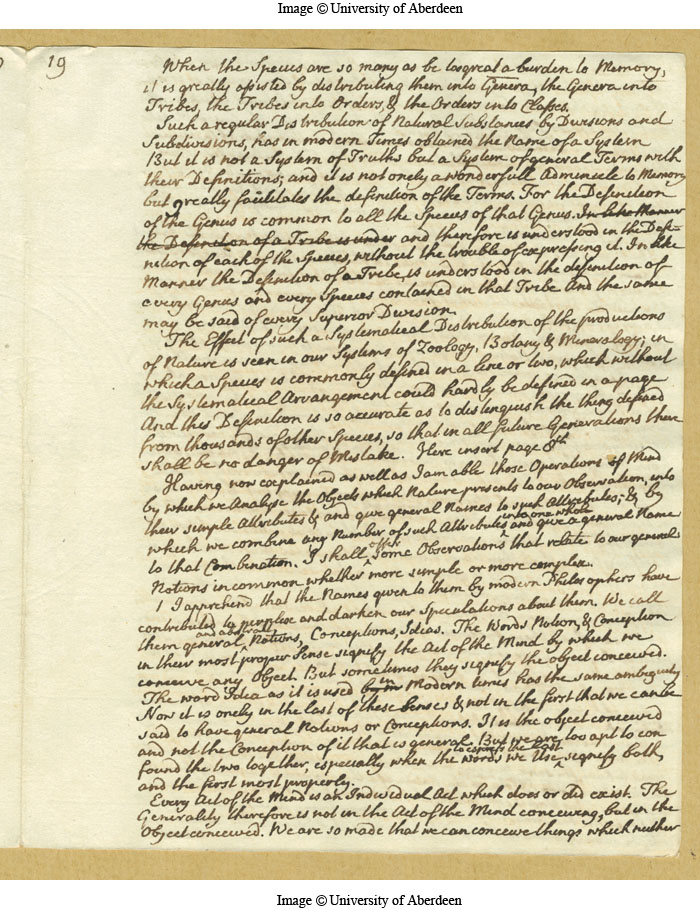 Image © University of Aberdeen
19
When the Species are so many as be too great a burden to Memory,
it is greatly assisted by distributing them into Genera, the Genera into
Tribes, the Tribes into Orders, & the Orders into Classes.
Such a regular Distribution of Natural Substances by Divisions and
Subdivisions, has in modern Times obtained the Name of a System
But it is not a System of Truths but a System of general Terms with
their Definitions; and it is not onely a wonderfull Adminicle to Memory
but greatly facilitates the definition of the Terms. For the Definition
of the Genus is common to all the Species of that Genus. In like Manner
the Definition of a Tribe is under and therefore is understood in the Defi-
nition of each of the Species, without the trouble of expressing it. In like
Manner the Definition of a Tribe, is understood in the definition of
every Genus and every Species contained in that Tribe And the same
may be said of every Superior Division.
The Effect of such a Systematical Distribution of the productions
of Nature is seen in our Systems of Zoology, Botany & Mineralogy; in
which a Species is commonly defined in a line or two, which without
the Systematical Arrangement could hardly be defined in a page
And this Definition is so accurate as to distinguish the thing defined
from thousands of other Species, so that in all future Generations there
shall be no danger of Mistake. Here insert page 8th
Having now explained as well as I am able those Operations of Mind
by which we Analyse the Objects which Nature presents to our Observation, into
their simple Attributes & and give general Names to such Attributes; & by
which we combine any Number of such Attributes into one whole and give a general Name
to that Combination. I shall offer some Observations that relate to our general
Notions in common whether more simple or more complex.
1 I apprehend that the Names given to them by modern Philosophers have
contributed to perplex and darken our Speculations about them. We call
them general and abstract Notions, Conceptions, Ideas. The Words Notion, & Conception
in their most proper Sense signify the Act of the Mind by which we
conceive any Object. But sometimes they signify the object conceived.
The word Idea as it is used by in Modern times has the same ambiguity
Now it is onely in the last of these Senses & not in the first that we can be
said to have general Notions or Conceptions. It is the object conceived
and not the Conception of it that is general. But we are too apt to con
found the two together, especially when the words we use to express the last signify both,
and the first most properly.
Every Act of the Mind is an Individual Act which does or did exist. The
Generality therefore is not in the Act of the Mind conceiving, but in the
Object conceived. We are so made that we can conceive things which neither
Image © University of Aberdeen